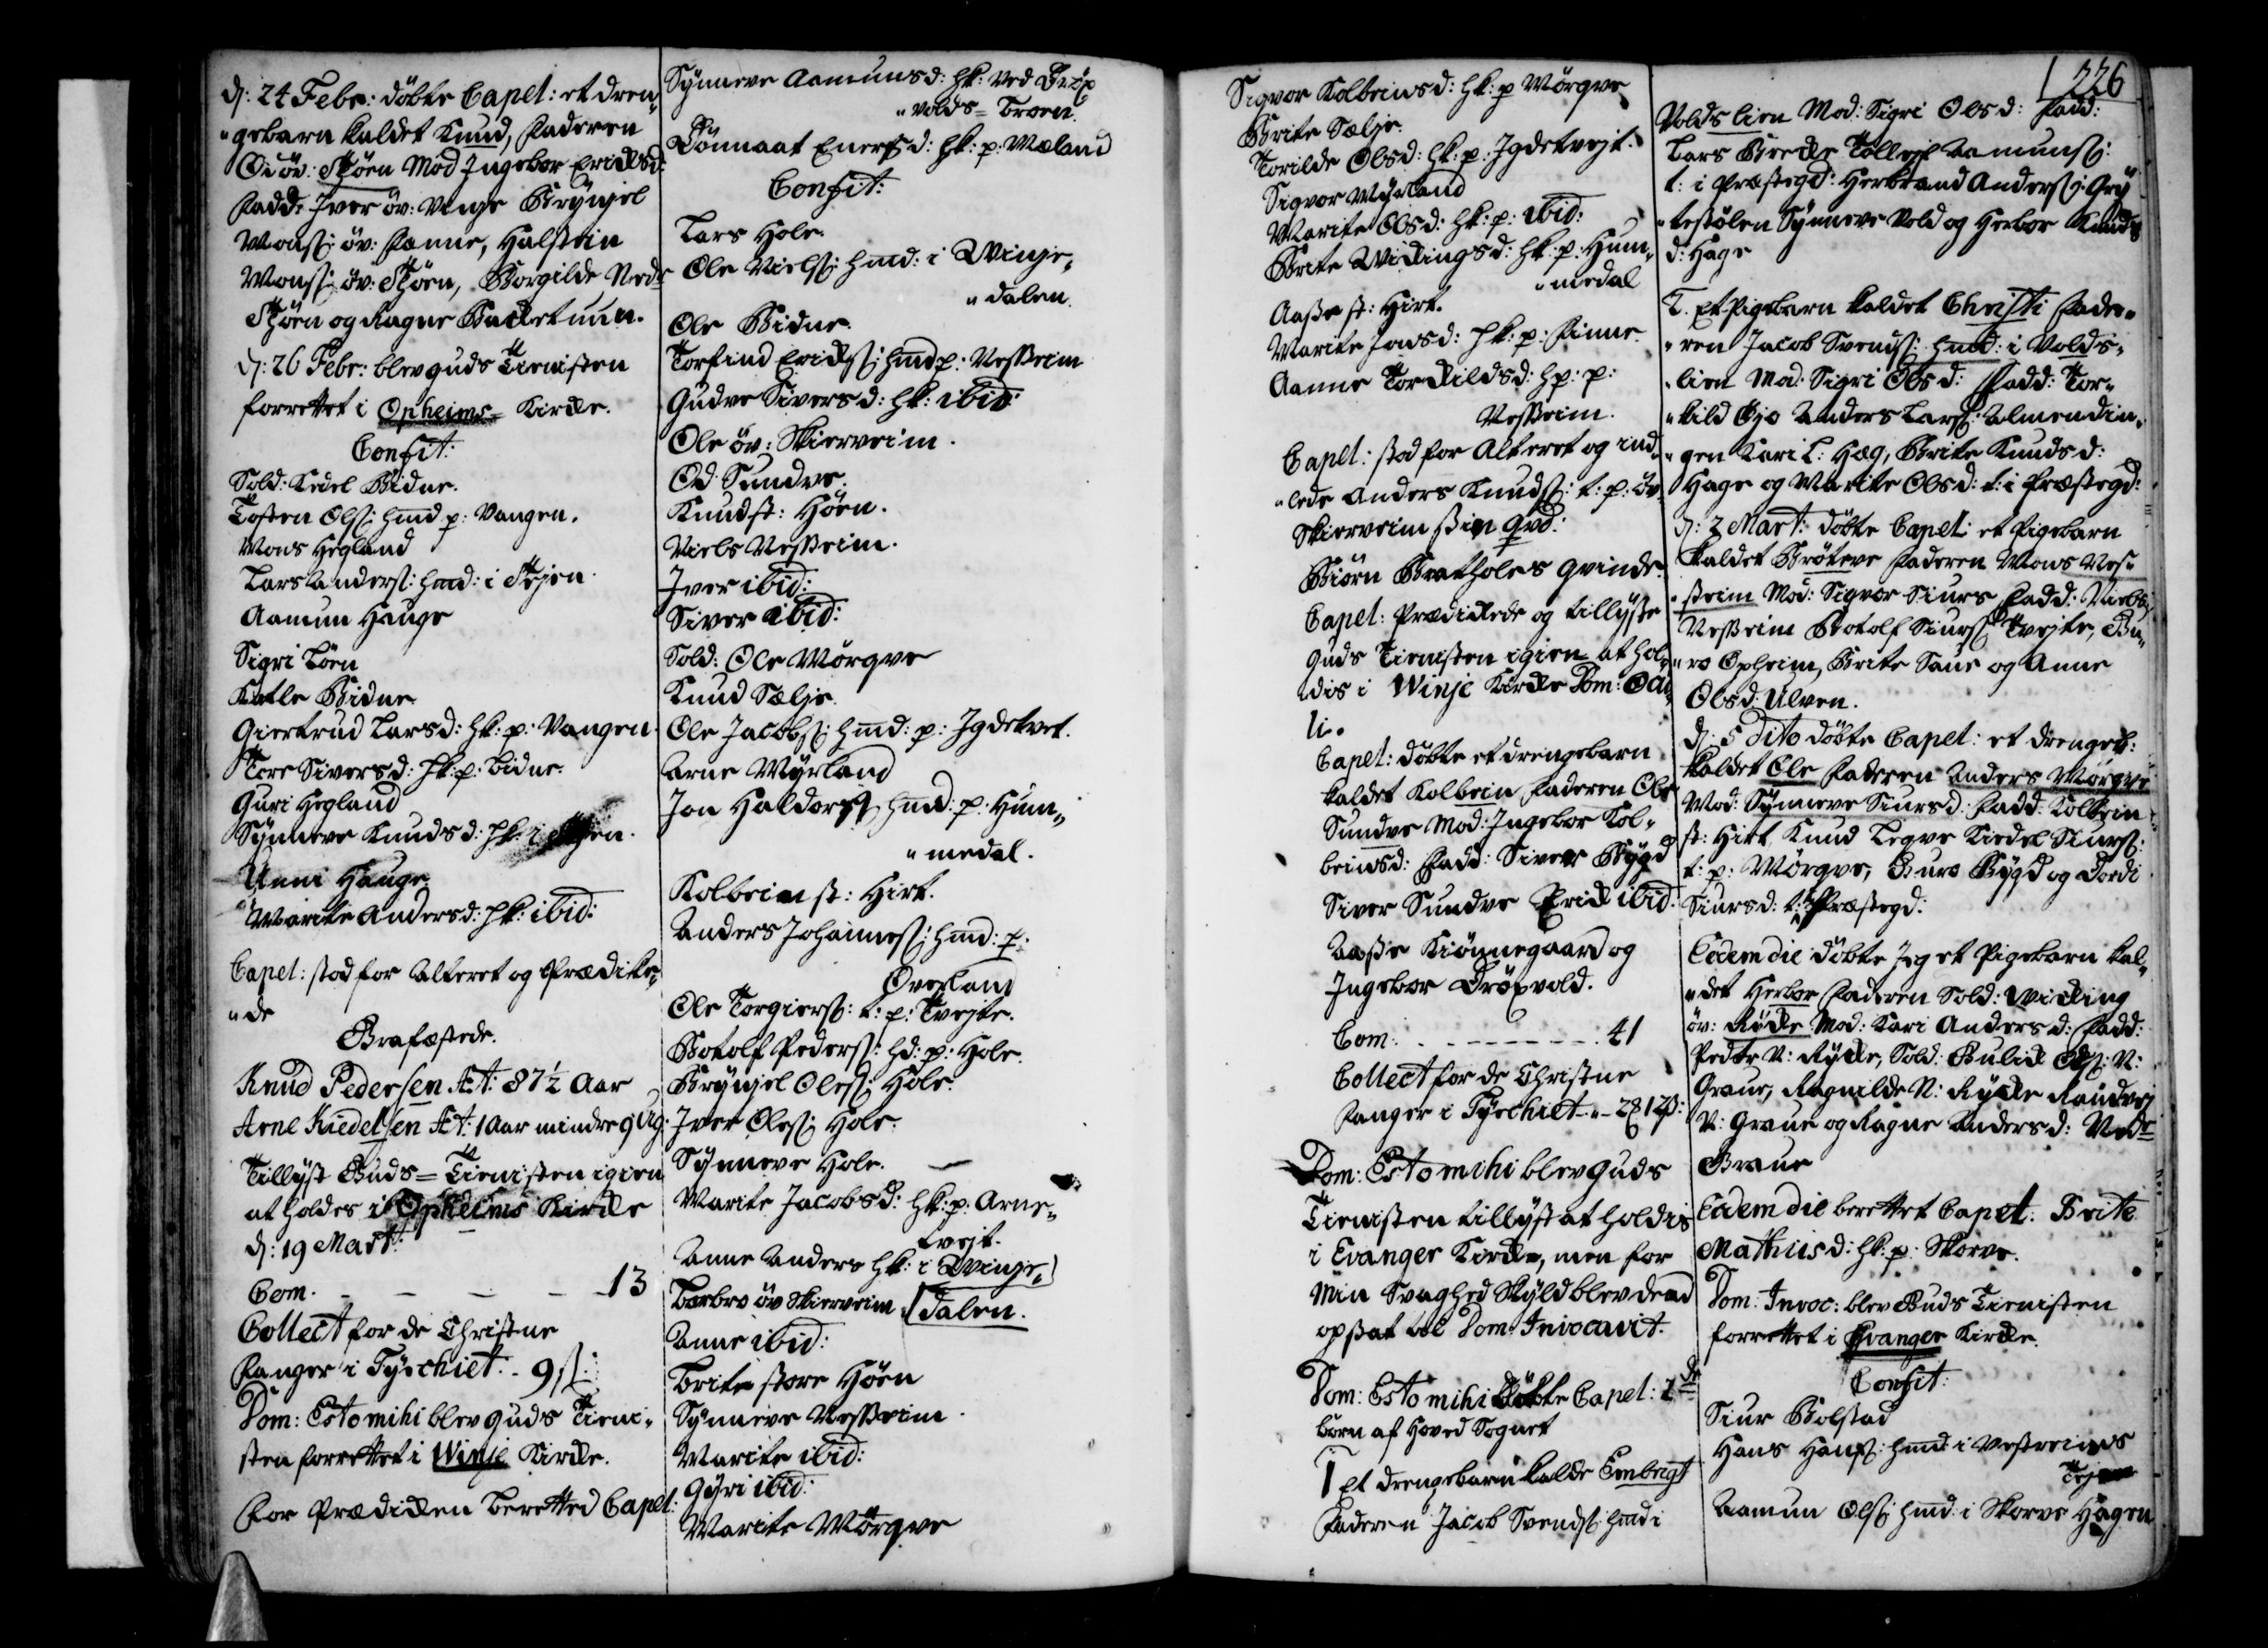 d: 24 Febr: döbte Capel: et dren„
„gebarn kaldet Knud, Faderen
Od öv: Skjöen Mod Ingebor Ericksd:
Fadd: Iver öv: Vinge Brynjel
Monss: öv: Fenne, Halstein
Monss: öv: Skjöen, Borgilde Nedr
Skjöen og Ragne Backetuun.
d: 26 Febr: blev Guds Tienisten
forrettet i Opheims= Kircke.
Confit:
Sold: Kedel Bidne.
Tosten Olss: hmd p: Vangen.
Mons Hegland
Lars Anderss: hmd: i
Aamun Hauge
Sigri Löen
Bidne
Giertrud Larsd: hk: p: Vangen
Tore Siversd: hk: p: Bidne.
Guri Hegland
Synneve Knudsd: hk: i
Unni Hauge
Marite Andersd: hk: ibid:
Capel: stod for Alteret og Prædike„
„de
Grafæstede.
Knud Pedersen Æt: 87½ Aar
Arne Kiedelsen Æt: 1 Aar mindre 9 Ug:
Tillyst Guds= Tienisten igien
at holdes i Opheims Kircke
d: 19 Mart:
Com. - - - - 13
Collect for de Christne
Fanger i Tyrchiet - 9 ß:
Dom: Estomihi blev Guds Tieni„
sten forrettet i Winje Kircke.
For Prædicken beretted Capel:
Synneve Aamunsd: hk: ved Dröx
„volds= Broen.
Rönnaat Enersd: hk: p: Mæland
Confit:
Lars Hole.
Ole Nielss: hmd: i Winje„
„dalen.
Ole Bidne.
Torfind Ericks: hmd p: Nesheim
Gudve Siversd: hk: ibid:
Ole öv: Skierveim.
Od Sundve.
Knud st: Höen.
Niels Nesheim.
Iver ibid:
Siver ibid:
Sold: Ole Mörqve
Knud Sælje
Ole Jacobss: hmd: p: Igdetvet.
Arne Myrland
Jon Haldorss: hmd: p: Hum„
„medal.
Kolbein st: Hirt.
Anders Johanness: hmd: p:
Överland
Ole Torgierss: t: p: Tvejte.
Botolf Pederss: hd: p: Hole.
Brynjel Oless: Hole.
Iver Oless: Hole.
Synneve Hole.
Marite Jacobsd: hk: p: Arne„
tvejt.
Anne Anders hk: i Winje„
Barbro öv Skierveim dalen.
Anne ibid:
Brite store Höen
Synneve Nesheim.
Marite ibid:
Gyri ibid:
Marite Mörqve
Sigvor Kolbeinsd: hk: p Mörqve
Brite Sælje.
Torilde Olsd: hk: p: Igdetvejt.
Sigvor Myrland
Marite Olsd: hk: p: ibid:
Brite Wickingsd: hk: p: Hum„
„medal
Aase st: Hirt.
Marite Jonsd: hk: p: Finne.
Aanne Torckildsd: hk: p:
Nesheim.
Capel: stod for Alteret og ind„
„lede Anders Knudss: t: p: öv
Skierveim sin Qvd:
Biörn Bratholes Qvinde.
Capel: Prædickede og tillyste
Guds Tienisten igien at hol„
dis i Winje Kircke Dom: Ocu
li.
Capel: döbte et drengebarn
kaldet Kolbein Faderen Ole
Sundve Mod: Ingebor Kol„
beinsd: Fadd: Siver Bygd
Siver Sundve Erick ibid:
Aasse Kiönnegaard og
Ingebor Dröxvold.
Com: - - - - 41
Collect for de Christne
Fanger i Tyrchiet - - 2 12ß:
Dom: Estomihi blev Guds
Tienisten tillyst at holdis
i Evanger Kircke, men for
min Svaghed skyld blev dend
opsat til Dom: Invocavit.
Dom: Estomihi döbte Capel: 2de
börn af Hoved Sognet
1 Et drengebarn kalde
Faderen Jacob Svendss: hmd i
226
Voldslien Mod: Sigri Olsd: Fadd:
Lars Tolleif Aamunss:
t: i Præstegd: Herbrand Anderss: Gry
„testölen Synneve Vold og Herbor Knuds
d: Hage
2. Et Pigebarn kaldet Christi Fade„
„ren Jacob Svendss: hmd: i Volds„
„lien Mod: Sigri Olsd: Fadd: Tor„
„kild Gjo Anders Larss: Almendin„
„gen Kari L: Hæg, Brite Knudsd:
Hage og Marite Olsd: t: i Præstegd:
d: 2 Mart: döbte Capel: et Pigebarn
kaldet Bröteve Faderen Mons Nes„
„heim Mod: Sigvor Siurs Fadd: Niels
Nesheim Botolf Siurss: Tvejte, Gu„
„ro Opheim, Brite Saue og Anne
Olsd: Ulven.
d: 5 dito döbte Capel: et drengeb:
kaldet Ole Faderen Anders Mörqve
Mod: Synneve Siursd: Fadd: Kolbein
st: Hirt Knud Tegve Kiedel Siurss:
t: p: Mörqve, Guro Bygd og Dordi
Siursd: t: i Præstegd:
Eodem die döbte Jeg et Pigebarn kal„
„det Herbor Faderen Sold: Wicking
öv: Rycke Mod: Kari Andersd: Fadd:
Peder N: Rycke, Sold: Gulick Olss: N:
Graue, Ragnilde N: Rycke Randvei
N: Graue og Ragne Andersd: Nedr
Graue
Eodem die berettet Capel: Brite
Mathiisd: hk: p: Skorve.
Dom: Invoc: blev Guds Tienisten
forrettet i Evanger Kircke.
Confit:
Siur Bolstad
Hans Hanss: hmd: i Vestreims
Aamun Olss: hmd: i Skorve Hagen